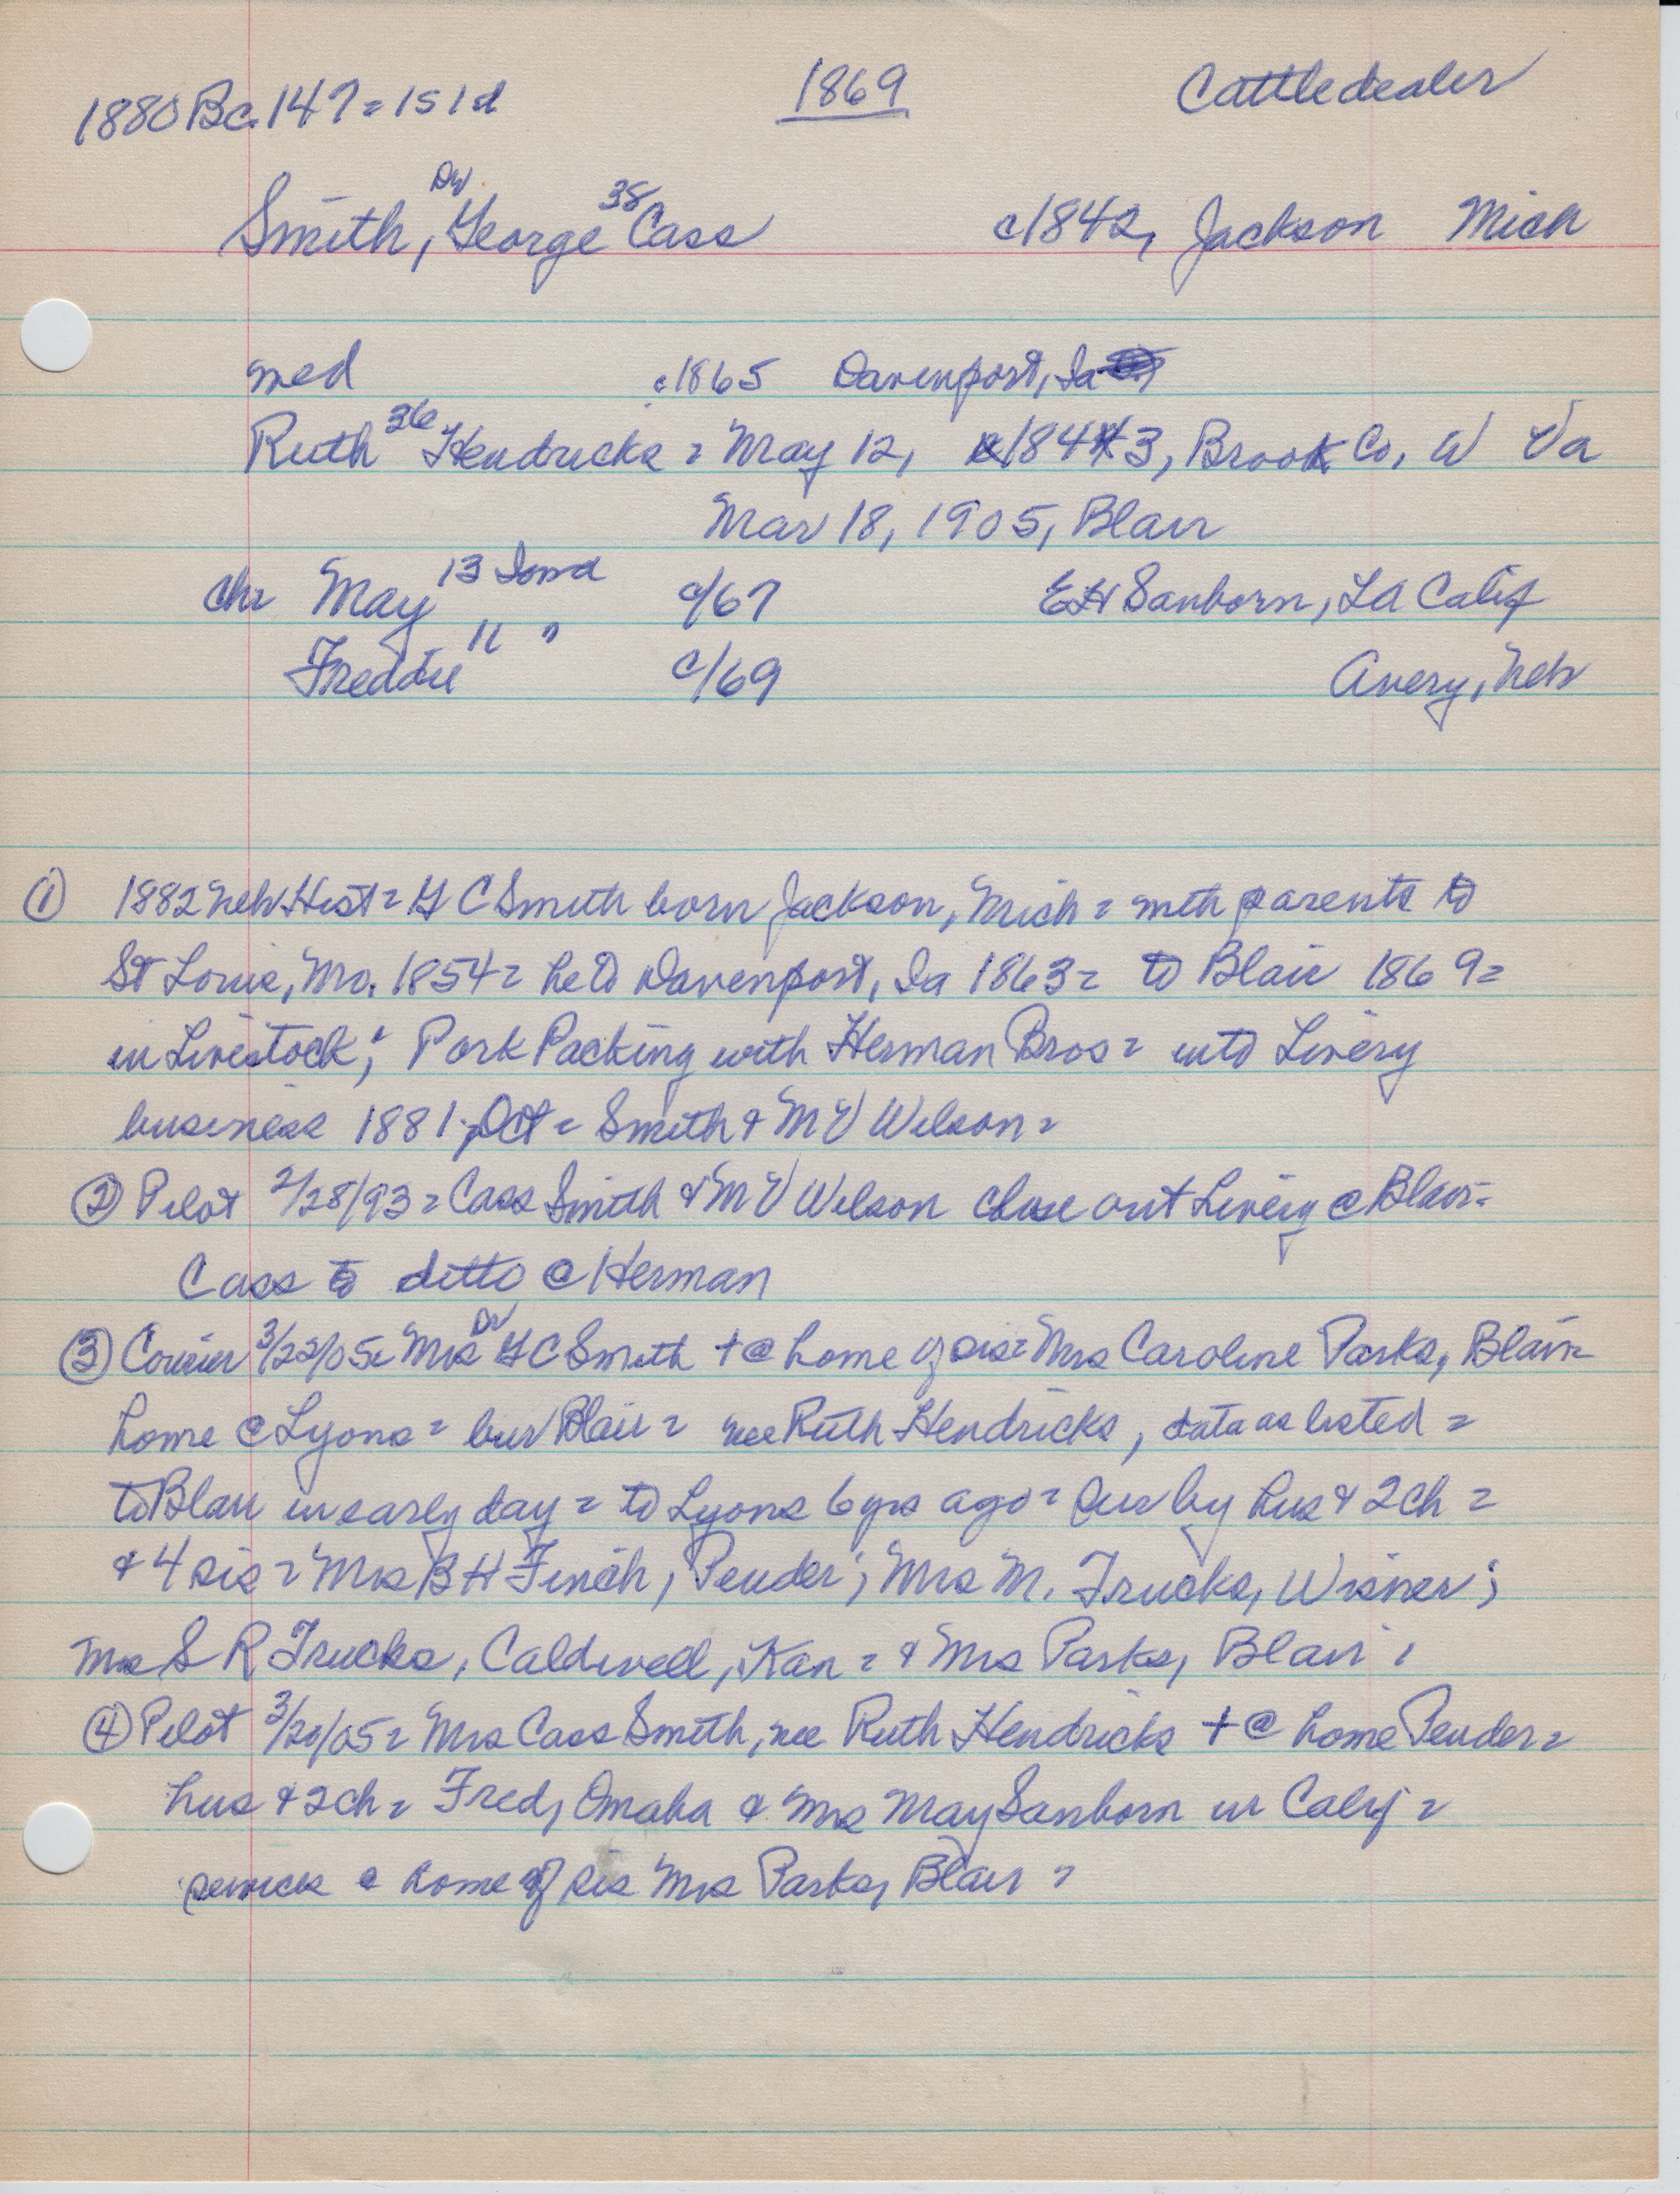 1880 Bc. 147 = 151d 1869 Cattledealer
Smith, Dr George 38 Cass c1842, Jackson Mich
med c1865 Davenport, Ia
Ruth 36 Hendricks = May 12, 1843, Brook Co, W Va
Mar 18, 1905, Blair
chr May 13 Iowa c/67 EH Sanborn, LA Calif
Freddie 11 " c/69 Avery, Neb
① 1882 Neb Hist = G C Smith born Jackson, Mich = with parents to
St Louis, Mo. 1854 = he to Davenport, Ia 1863 = to Blair 1869 =
in Livestock; Pork Packing with Herman Bros = into Livery
business 1881, Oct = Smith & M V Wilson =
② Pilot 2/28/93 = Cass Smith & M V Wilson close out Livery @ Blair =
Cass to ditto @ Herman
③ Courier 3/22/05 = Mrs Dr G C Smith + @ home of sis = Mrs Caroline Parks, Blair =
home @ Lyons = bur Blair = nee Ruth Hendricks, data as listed =
to Blair in early day = to Lyons 6 yrs ago = sur by hus & 2 ch =
& 4 sis = Mrs B H Finch, Pender; Mrs M. Trucks, Wisner;
Mrs S R Trucks, Caldwell, Kan = & Mrs Parks, Blair,
④ Pilot 3/20/05 = Mrs Cass Smith, nee Ruth Hendricks + @ home Pender =
hus & 2 ch = Fred, Omaha & Mrs May Sanborn in Calif =
services @ home of sis Mrs Parks, Blair =